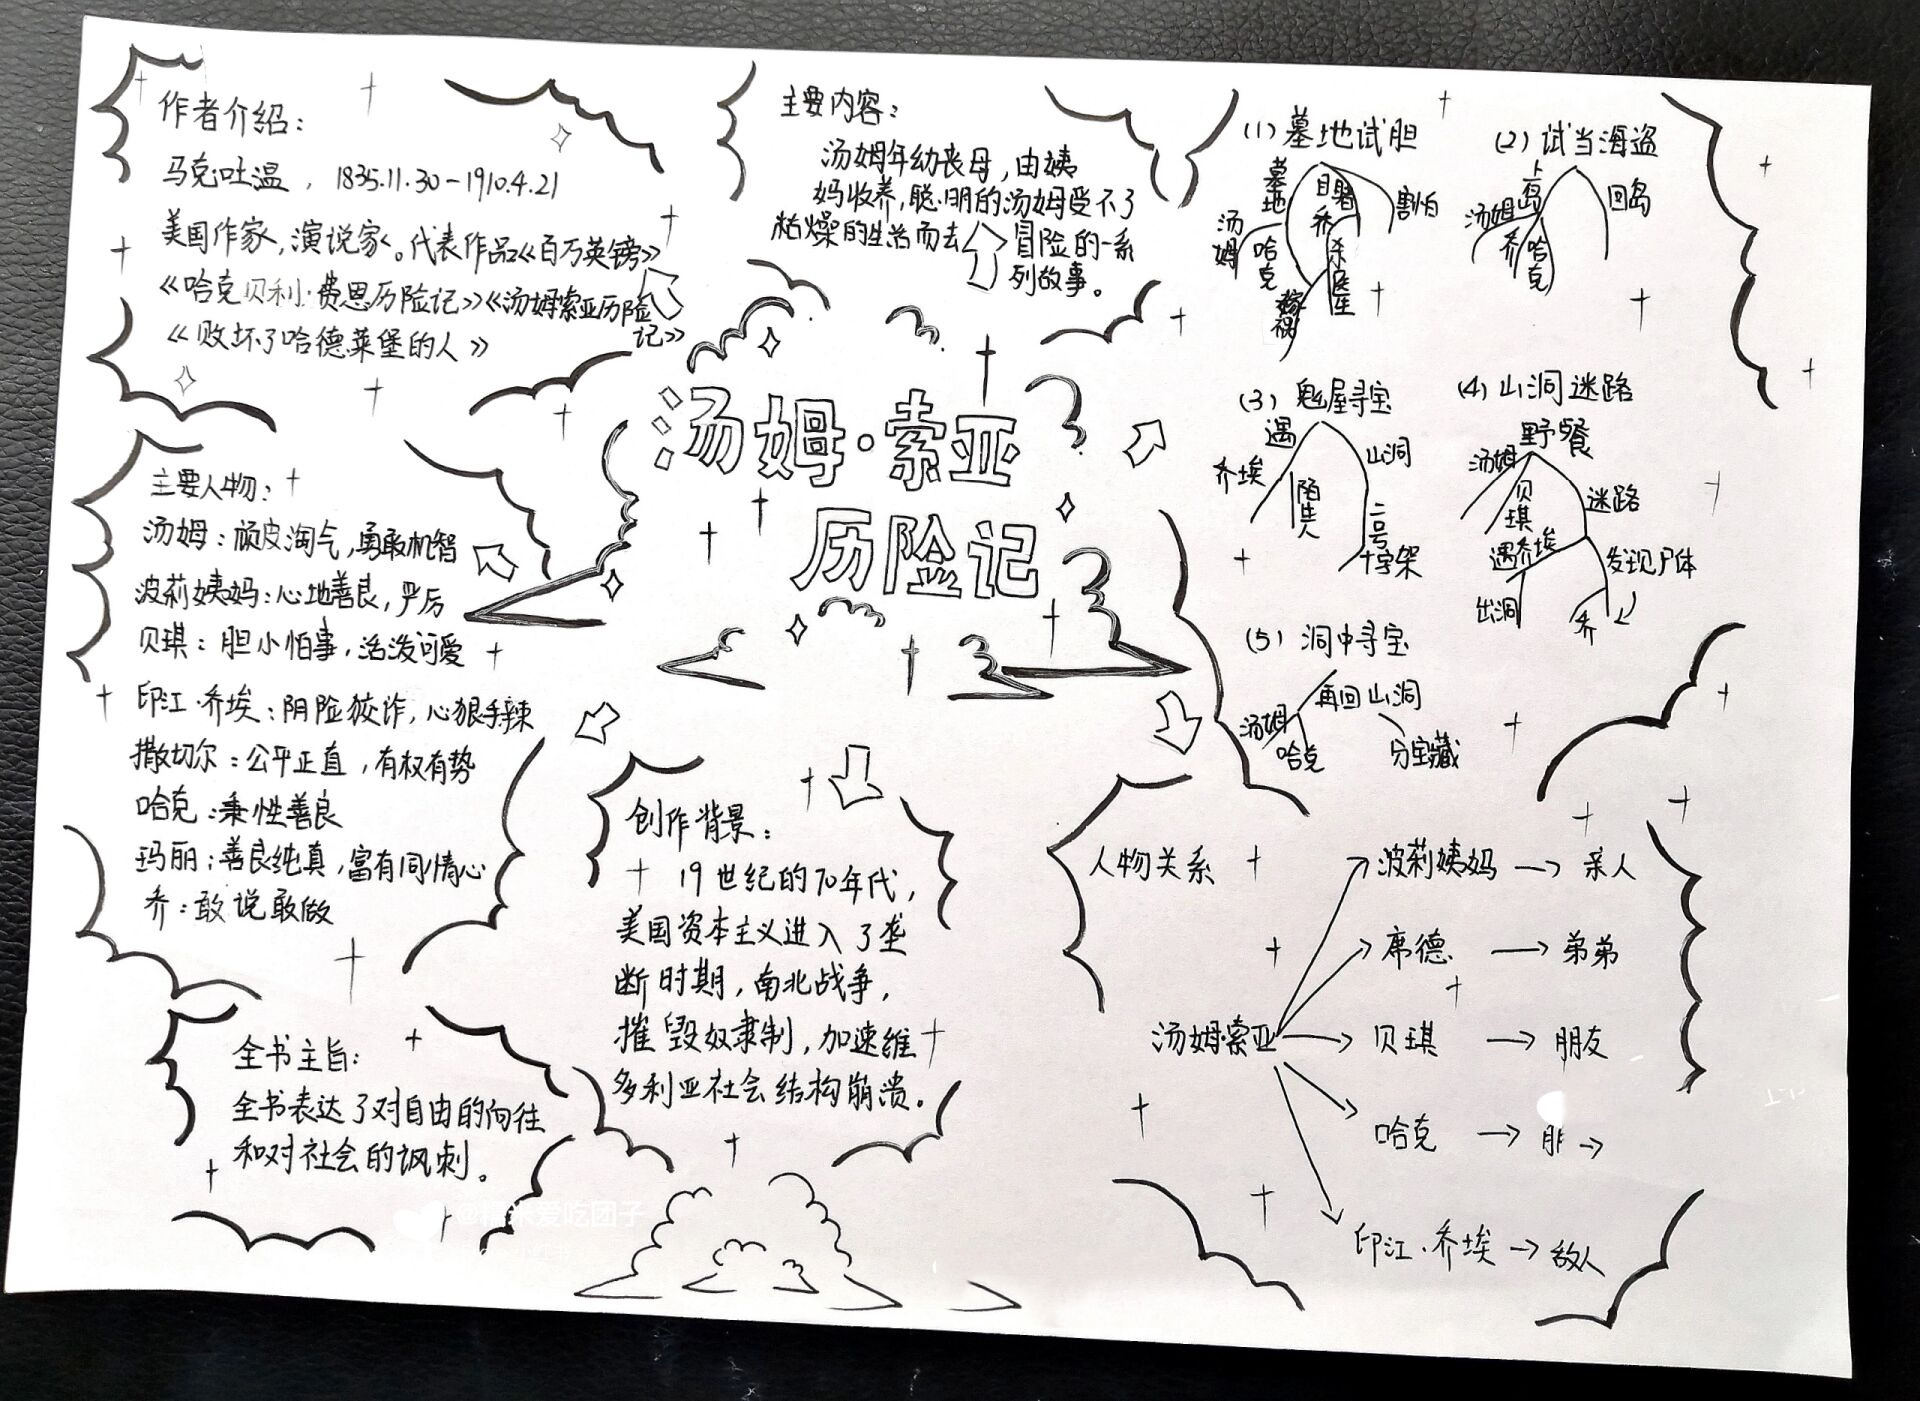 作者介绍：
马克吐温，1835.11.30-1910.4.21
美国作家，演说家。代表作品《百万英镑》
《哈克贝利·费恩历险记》《汤姆索亚历险
记》
《败坏了哈德莱堡的人》
主要内容：
汤姆年幼丧母，由姨
妈收养，聪明的汤姆受不了
枯燥的生活而去冒险的一系
列故事。
汤姆·索亚
历险记
主要人物：
汤姆：顽皮淘气，勇敢机智
波莉姨妈：心地善良，严厉
贝琪：胆小怕事，活泼可爱
印江·乔埃：阴险狡诈，心狠手辣
撒切尔：公平正直，有权有势
哈克：秉性善良
玛丽：善良纯真，富有同情心
乔：敢说敢做
全书主旨：
全书表达了对自由的向往
和对社会的讽刺。
创作背景：
19世纪的70年代，
美国资本主义进入了垄
断时期，南北战争，
摧毁奴隶制，加速维
多利亚社会结构崩溃。
(1) 墓地试胆
墓地
汤姆
哈克
目睹
乔
杀医生
嫁祸
害怕
(2) 试当海盗
上岛
汤姆
乔
哈克
回岛
(3) 鬼屋寻宝
遇
乔埃
陌生人
山洞
二号
十字架
(4) 山洞迷路
野餐
汤姆
贝琪
迷路
遇乔埃
发现尸体
出洞
乔
(5) 洞中寻宝
再回山洞
汤姆
哈克
分宝藏
人物关系
汤姆·索亚
波莉姨妈 → 亲人
席德 → 弟弟
贝琪 → 朋友
哈克 →
印江·乔埃 → 敌人